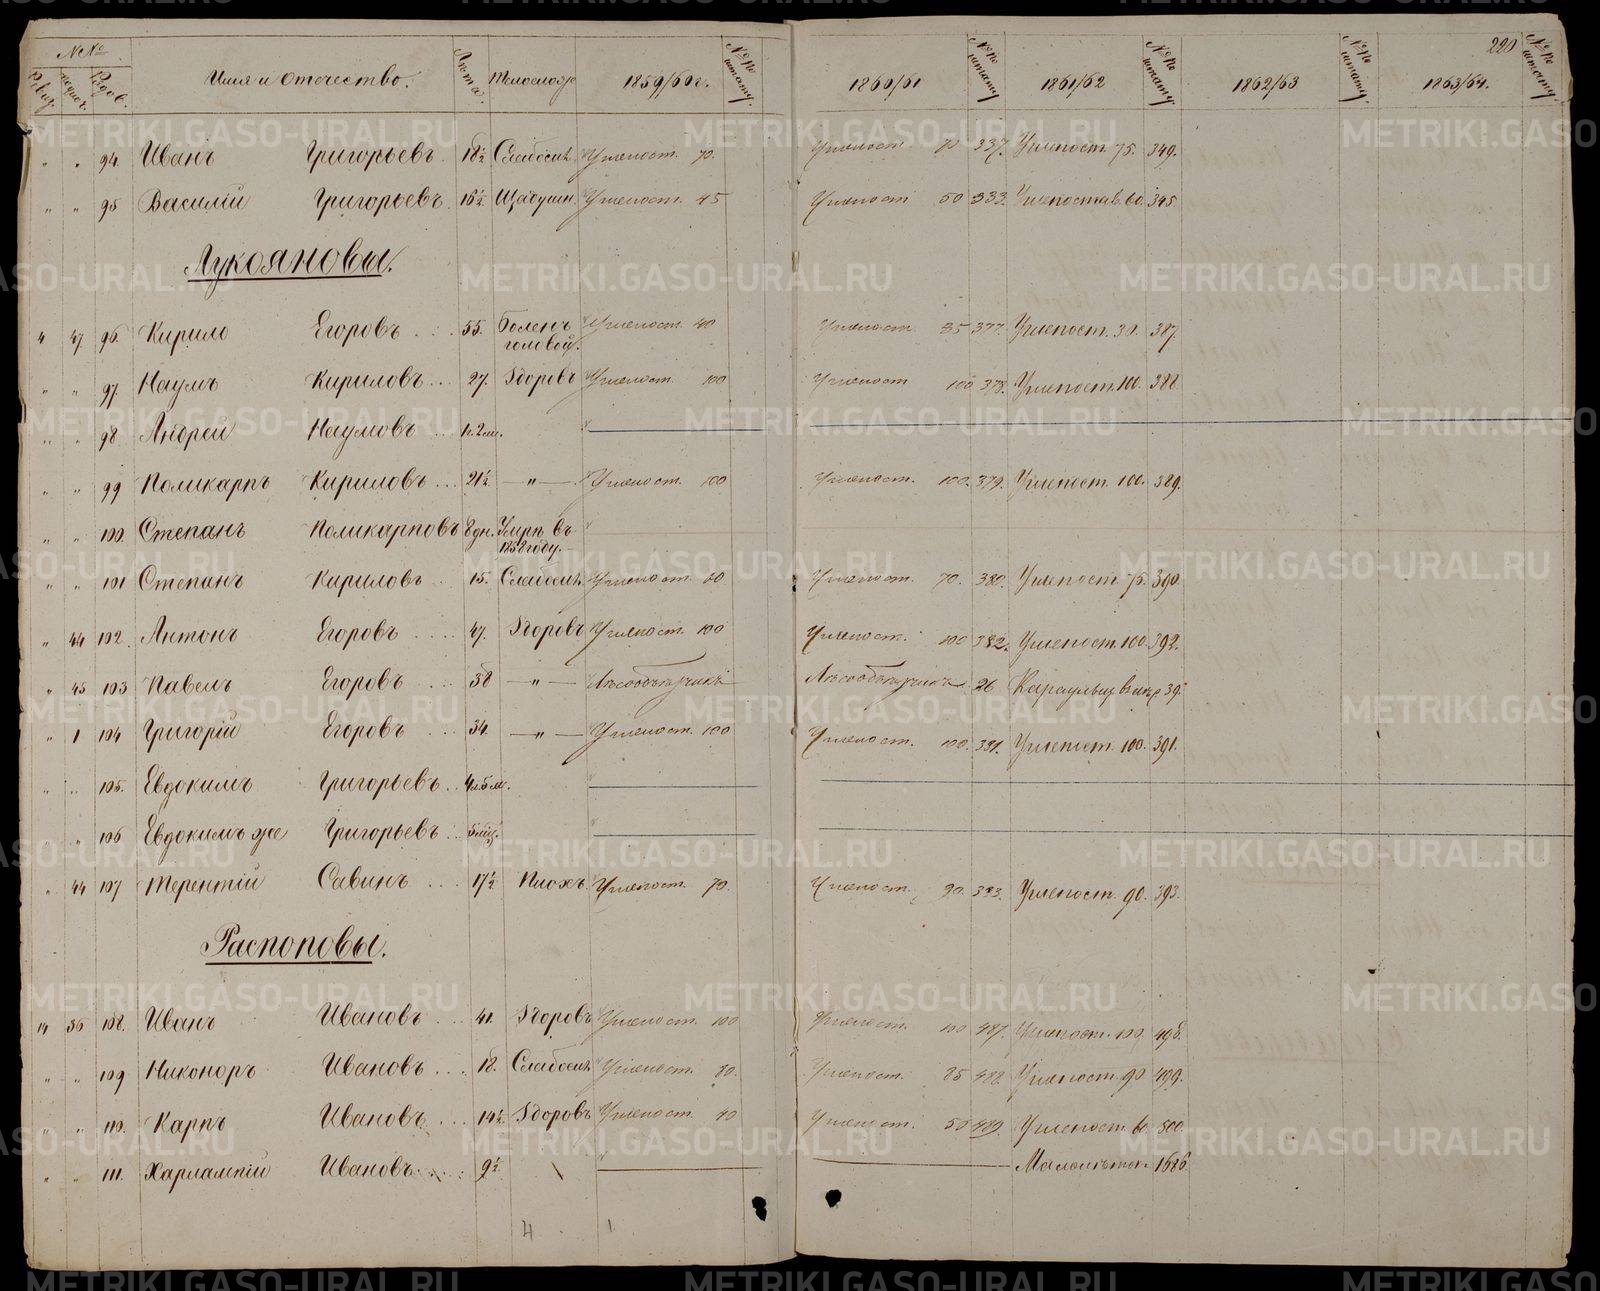 №№ Имя и Отчество. Лѣта. Телослож. 1859/60 г. №№ по штату. 1860/61 №№ по штату 1861/62 №№ по штату 1862/63 №№ по штату. 1863/64. 220 №№ по штату.
" " 94. Иванъ Григорьевъ. 18½ Слабосил. Углепост. 70. Углепост. 70 337. Углепост. 75. 349.
" " 95 Василій Григорьевъ. 16½ Щадушн. Углепост. 45 Углепост 50 333. Углепостав. 60. 345
Лукояновы.
4 47 96. Кирило Егоровъ 55. Боленъ головой. Углепост. 40 Углепост. 35 377. Углепост. 30. 387.
" " 97. Наумъ Кириловъ 27. Здоровъ Углепост. 100 Углепост 100 378. Углепост. 100. 388.
" " 98 Андрей Наумовъ 1г.2м.
" " 99 Поликарпъ Кириловъ 21½ — " — Углепост. 100 Углепост. 100. 379. Углепост. 100. 389.
" " 100. Степанъ Поликарповъ 8дн. Умръ въ 1858 году.
" " 101 Степанъ Кириловъ 15. Слабосил. Углепост. 60 Углепост. 70. 380. Углепост. 75. 390.
" 44 102. Антонъ Егоровъ 47. Здоровъ Углепост. 100 Углепост. 100 382. Углепост. 100. 392.
" 45 103 Павелъ Егоровъ 38 — " — Лѣсообъѣзчикъ Лѣсообъѣзчикъ 26
" 1 104 Григорій Егоровъ 34. — " — Углепост. 100 Углепост. 100. 381. Углепост. 100. 391.
" " 105. Евдокимъ Григорьевъ 4г.5м.
" " 106 Евдокимъ же Григорьевъ
" 44 107 Терентій Савинъ 17½ Плохъ. Углепост. 70. Углепост. 90. 383. Углепост. 90. 393.
Распоповы.
14 36 108. Иванъ Ивановъ 41. Здоровъ Углепост. 100 Углепост. 100 487. Углепост. 100. 498.
" " 109 Никоноръ Ивановъ 18. Слабосил. Углепост. 80. Углепост. 85 488. Углепост. 90 499.
" " 110. Карпъ Ивановъ 14½ Здоровъ Углепост. 40 Углепост. 50 489. Углепост. 60. 500.
" " 111. Харлампій Ивановъ 9½ Малолѣтокъ 1686.
4 1
METRIKI.GASO-URAL.RU